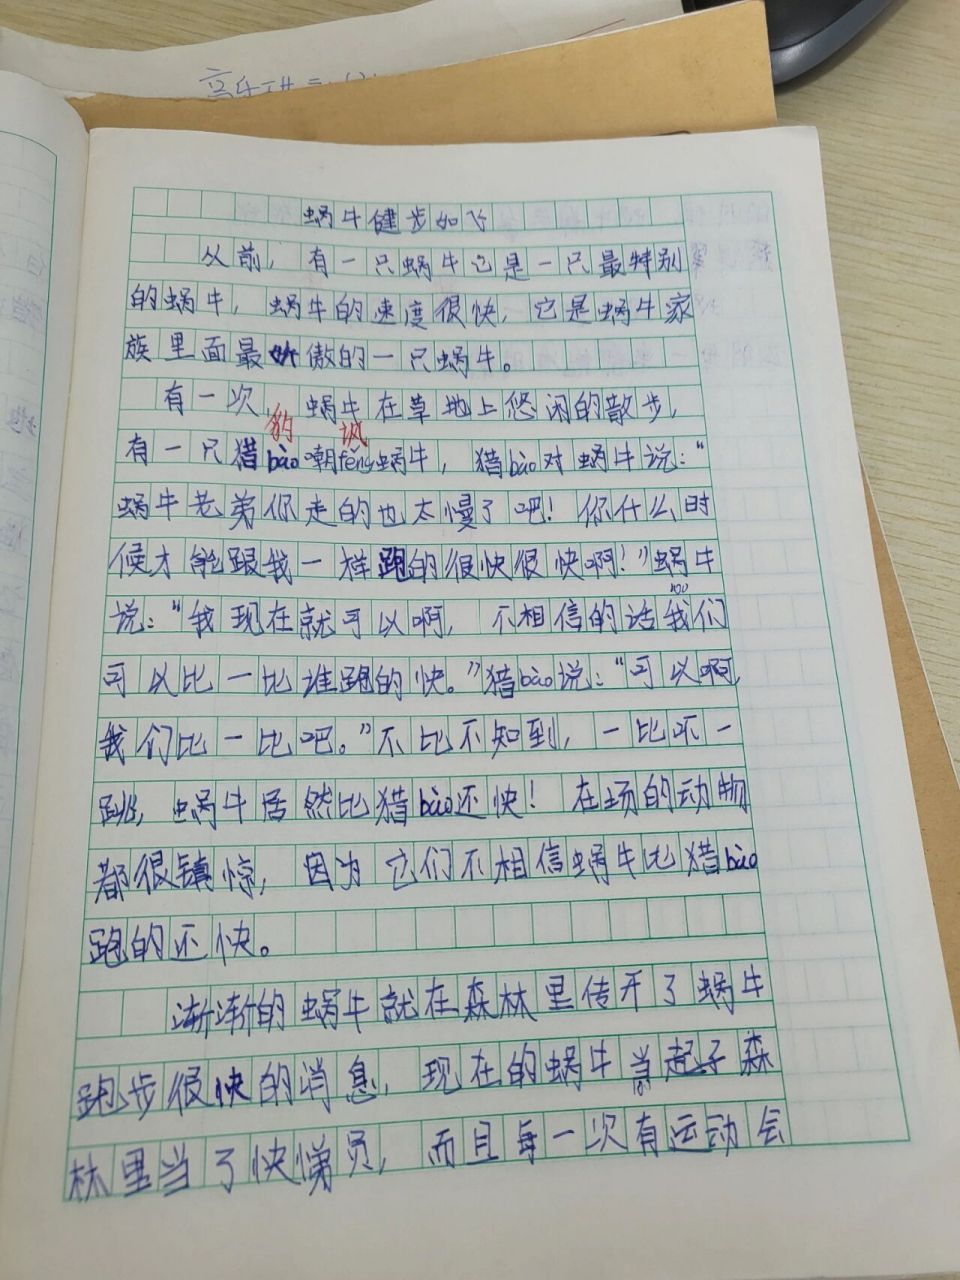 蜗牛健步如飞
从前，有一只蜗牛它是一只最特别
的蜗牛，蜗牛的速度很快，它是蜗牛家
族里面最傲的一只蜗牛。
有一次，蜗牛在草地上悠闲的散步，
豹 讽
有一只猎bào嘲fěng蜗牛，猎bào对蜗牛说：“
蜗牛老弟你走的也太慢了吧！你什么时
候才能跟我一样跑的很快很快啊！”蜗牛
说：“我现在就可以啊，不相信的话我们
可以比一比谁跑的快。”猎bào说：“可以啊，
我们比一比吧。”不比不知到，一比吓一
跳，蜗牛居然比猎bào还快！在场的动物
都很镇惊，因为它们不相信蜗牛比猎bào
跑的还快。
渐渐的蜗牛就在森林里传开了蜗牛
跑步很快的消息，现在的蜗牛当起了森
林里当了快悌员，而且每一次有运动会